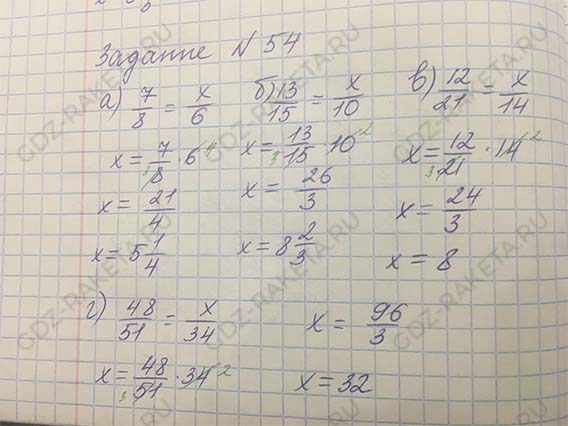 Задание N 54
а) 7/8 = x/6
x = 7/8 · 6
x = 21/4
x = 5 1/4
б) 13/15 = x/10
x = 13/15 · 10
x = 26/3
x = 8 2/3
в) 12/21 = x/14
x = 12/21 · 14
x = 24/3
x = 8
г) 48/51 = x/34
x = 48/51 · 34
x = 96/3
x = 32
GDZ-RAKETA.RU